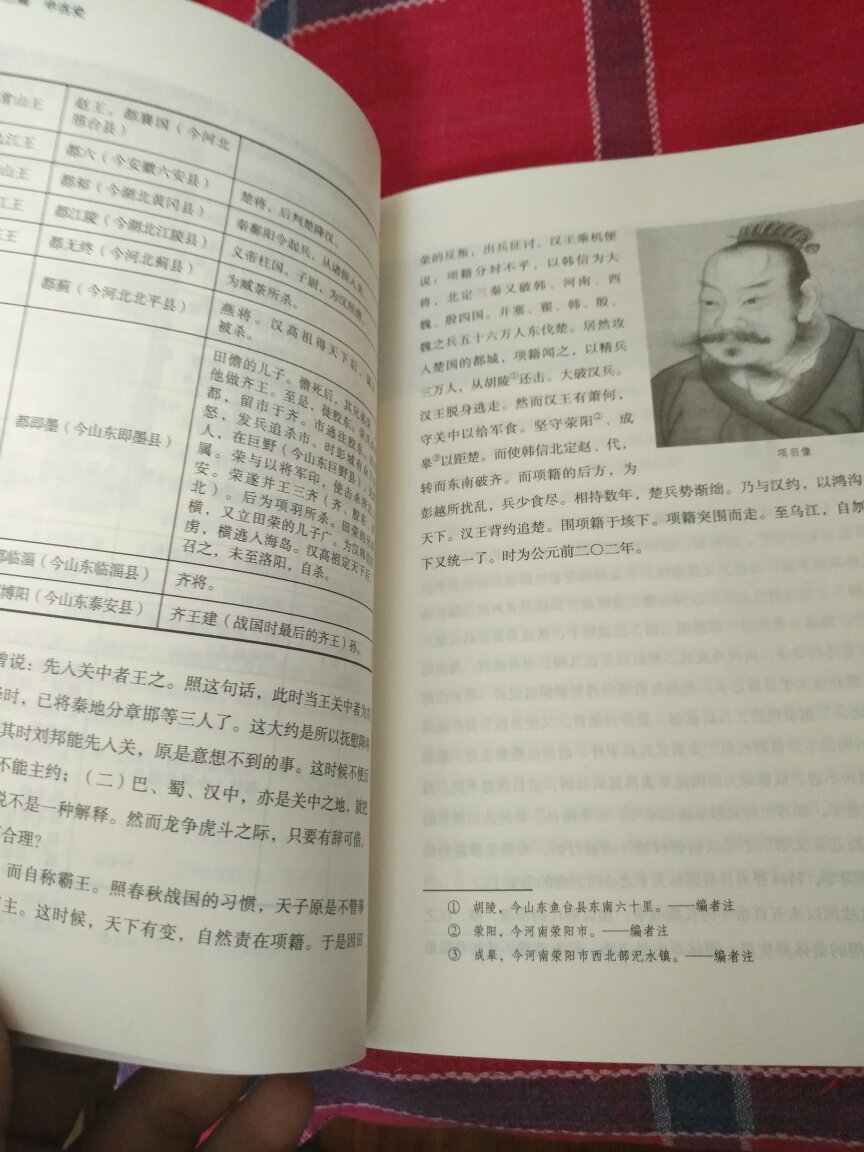 中古史
常山王 赵王。都襄国（今河北
邢台县）
九江王 都六（今安徽六安县） 楚将，后判楚降汉。
山王 都邾（今湖北黄冈县） 秦鄱阳令起兵，从诸侯入关。
江王 都江陵（今湖北江陵县） 义帝柱国。子尉，为汉所虏。
王 都无终（今河北蓟县） 为臧荼所杀。
都蓟（今河北北平县） 燕将。汉高祖得天下后，
被杀。
都即墨（今山东即墨县） 田儋的儿子。儋死后，其兄弟
他做齐王。至是，徙胶东。荣
都，留市于齐。市逃往胶东。
怒，发兵追杀市。时彭城有
人，在巨野（今山东巨野县），
属。荣与以将军印，使击杀
安。荣遂并王三齐（齐，胶东，
北）。后为项羽所杀。田荣的
横，又立田荣的儿子广。为汉韩信
虏，横逃入海岛。汉高祖定天下后，
召之，未至洛阳，自杀。
都临淄（今山东临淄县） 齐将。
博阳（今山东泰安县） 齐王建（战国时最后的齐王）孙。
曾说：先入关中者王之。照这句话，此时当王关中者方
时，已将秦地分章邯等三人了。这大约是所以抚慰降
其时刘邦能先入关，原是意想不到的事。这时候不便反
不能主约；（二）巴、蜀、汉中，亦是关中之地，就把
说不是一种解释。然而龙争虎斗之际，只要有辞可借，
合理？
而自称霸王。照春秋战国的习惯，天子原是不管事
主。这时候，天下有变，自然责在项籍。于是因田
荣的反叛，出兵征讨。汉王乘机便
说：项籍分封不平，以韩信为大
将，北定三秦又破韩、河南、西
魏、殷四国。并塞、翟、韩、殷、
魏之兵五十六万人东伐楚。居然攻
入楚国的都城，项籍闻之，以精兵
三万人，从胡陵①还击。大破汉兵。
汉王脱身逃走。然而汉王有萧何，
守关中以给军食。坚守荥阳②、成
皋③以距楚。而使韩信北定赵、代，
转而东南破齐。而项籍的后方，为
彭越所扰乱，兵少食尽。相持数年，楚兵势渐绌。乃与汉约，以鸿沟
天下。汉王背约追楚。围项籍于垓下。项籍突围而走。至乌江，自刎
下又统一了。时为公元前二〇二年。
项羽像
① 胡陵，今山东鱼台县东南六十里。——编者注
② 荥阳，今河南荥阳市。——编者注
③ 成皋，今河南荥阳市西北部汜水镇。——编者注